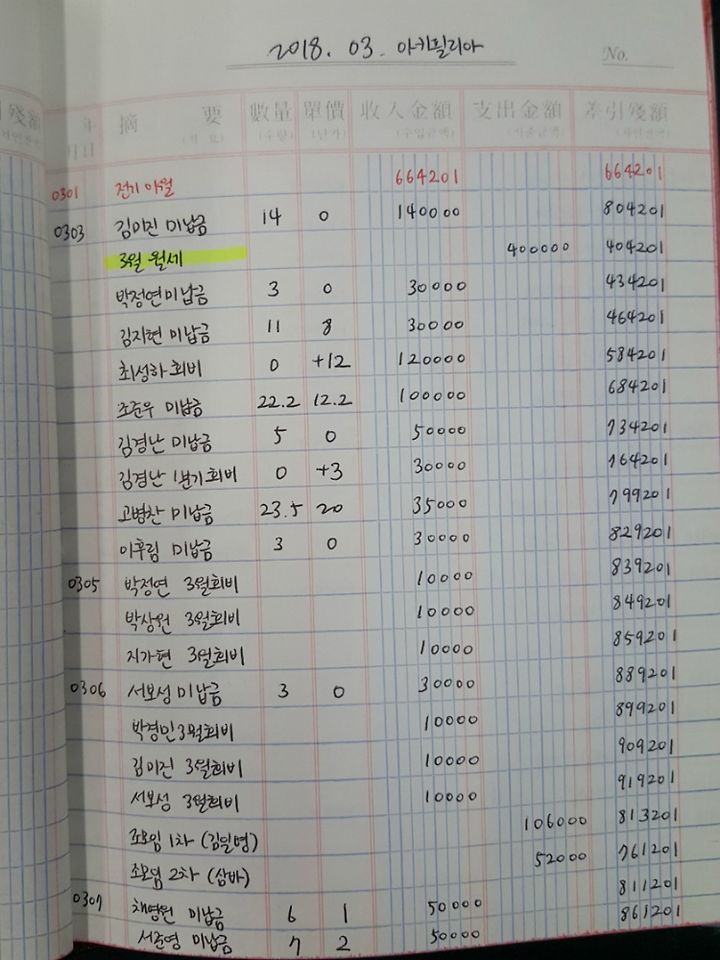 2018. 03. 아키필리아
No.
年 月日 摘要 (적요) 數量 (수량) 單價 (단가) 收入金額 (수입금액) 支出金額 (지출금액) 差引殘額 (차인잔액)
0301 전기 이월 664201 664201
0303 김이진 미납금 14 0 140000 804201
3월 월세 400000 404201
박정연 미납금 3 0 30000 434201
김지현 미납금 11 8 30000 464201
최성하 회비 0 +12 120000 584201
조준우 미납금 22.2 12.2 100000 684201
김경난 미납금 5 0 50000 734201
김경난 1분기 회비 0 +3 30000 764201
고병찬 미납금 23.5 20 35000 799201
이후림 미납금 3 0 30000 829201
0305 박정연 3월회비 10000 839201
박상원 3월회비 10000 849201
지가현 3월회비 10000 859201
0306 서보성 미납금 3 0 30000 889201
박경민 3월회비 10000 899201
김이진 3월회비 10000 909201
서보성 3월회비 10000 919201
조모임 1차 (김일병) 106000 813201
조모임 2차 (삼바) 52000 761201
0307 채영원 미납금 6 1 50000 811201
서준영 미납금 7 2 50000 861201